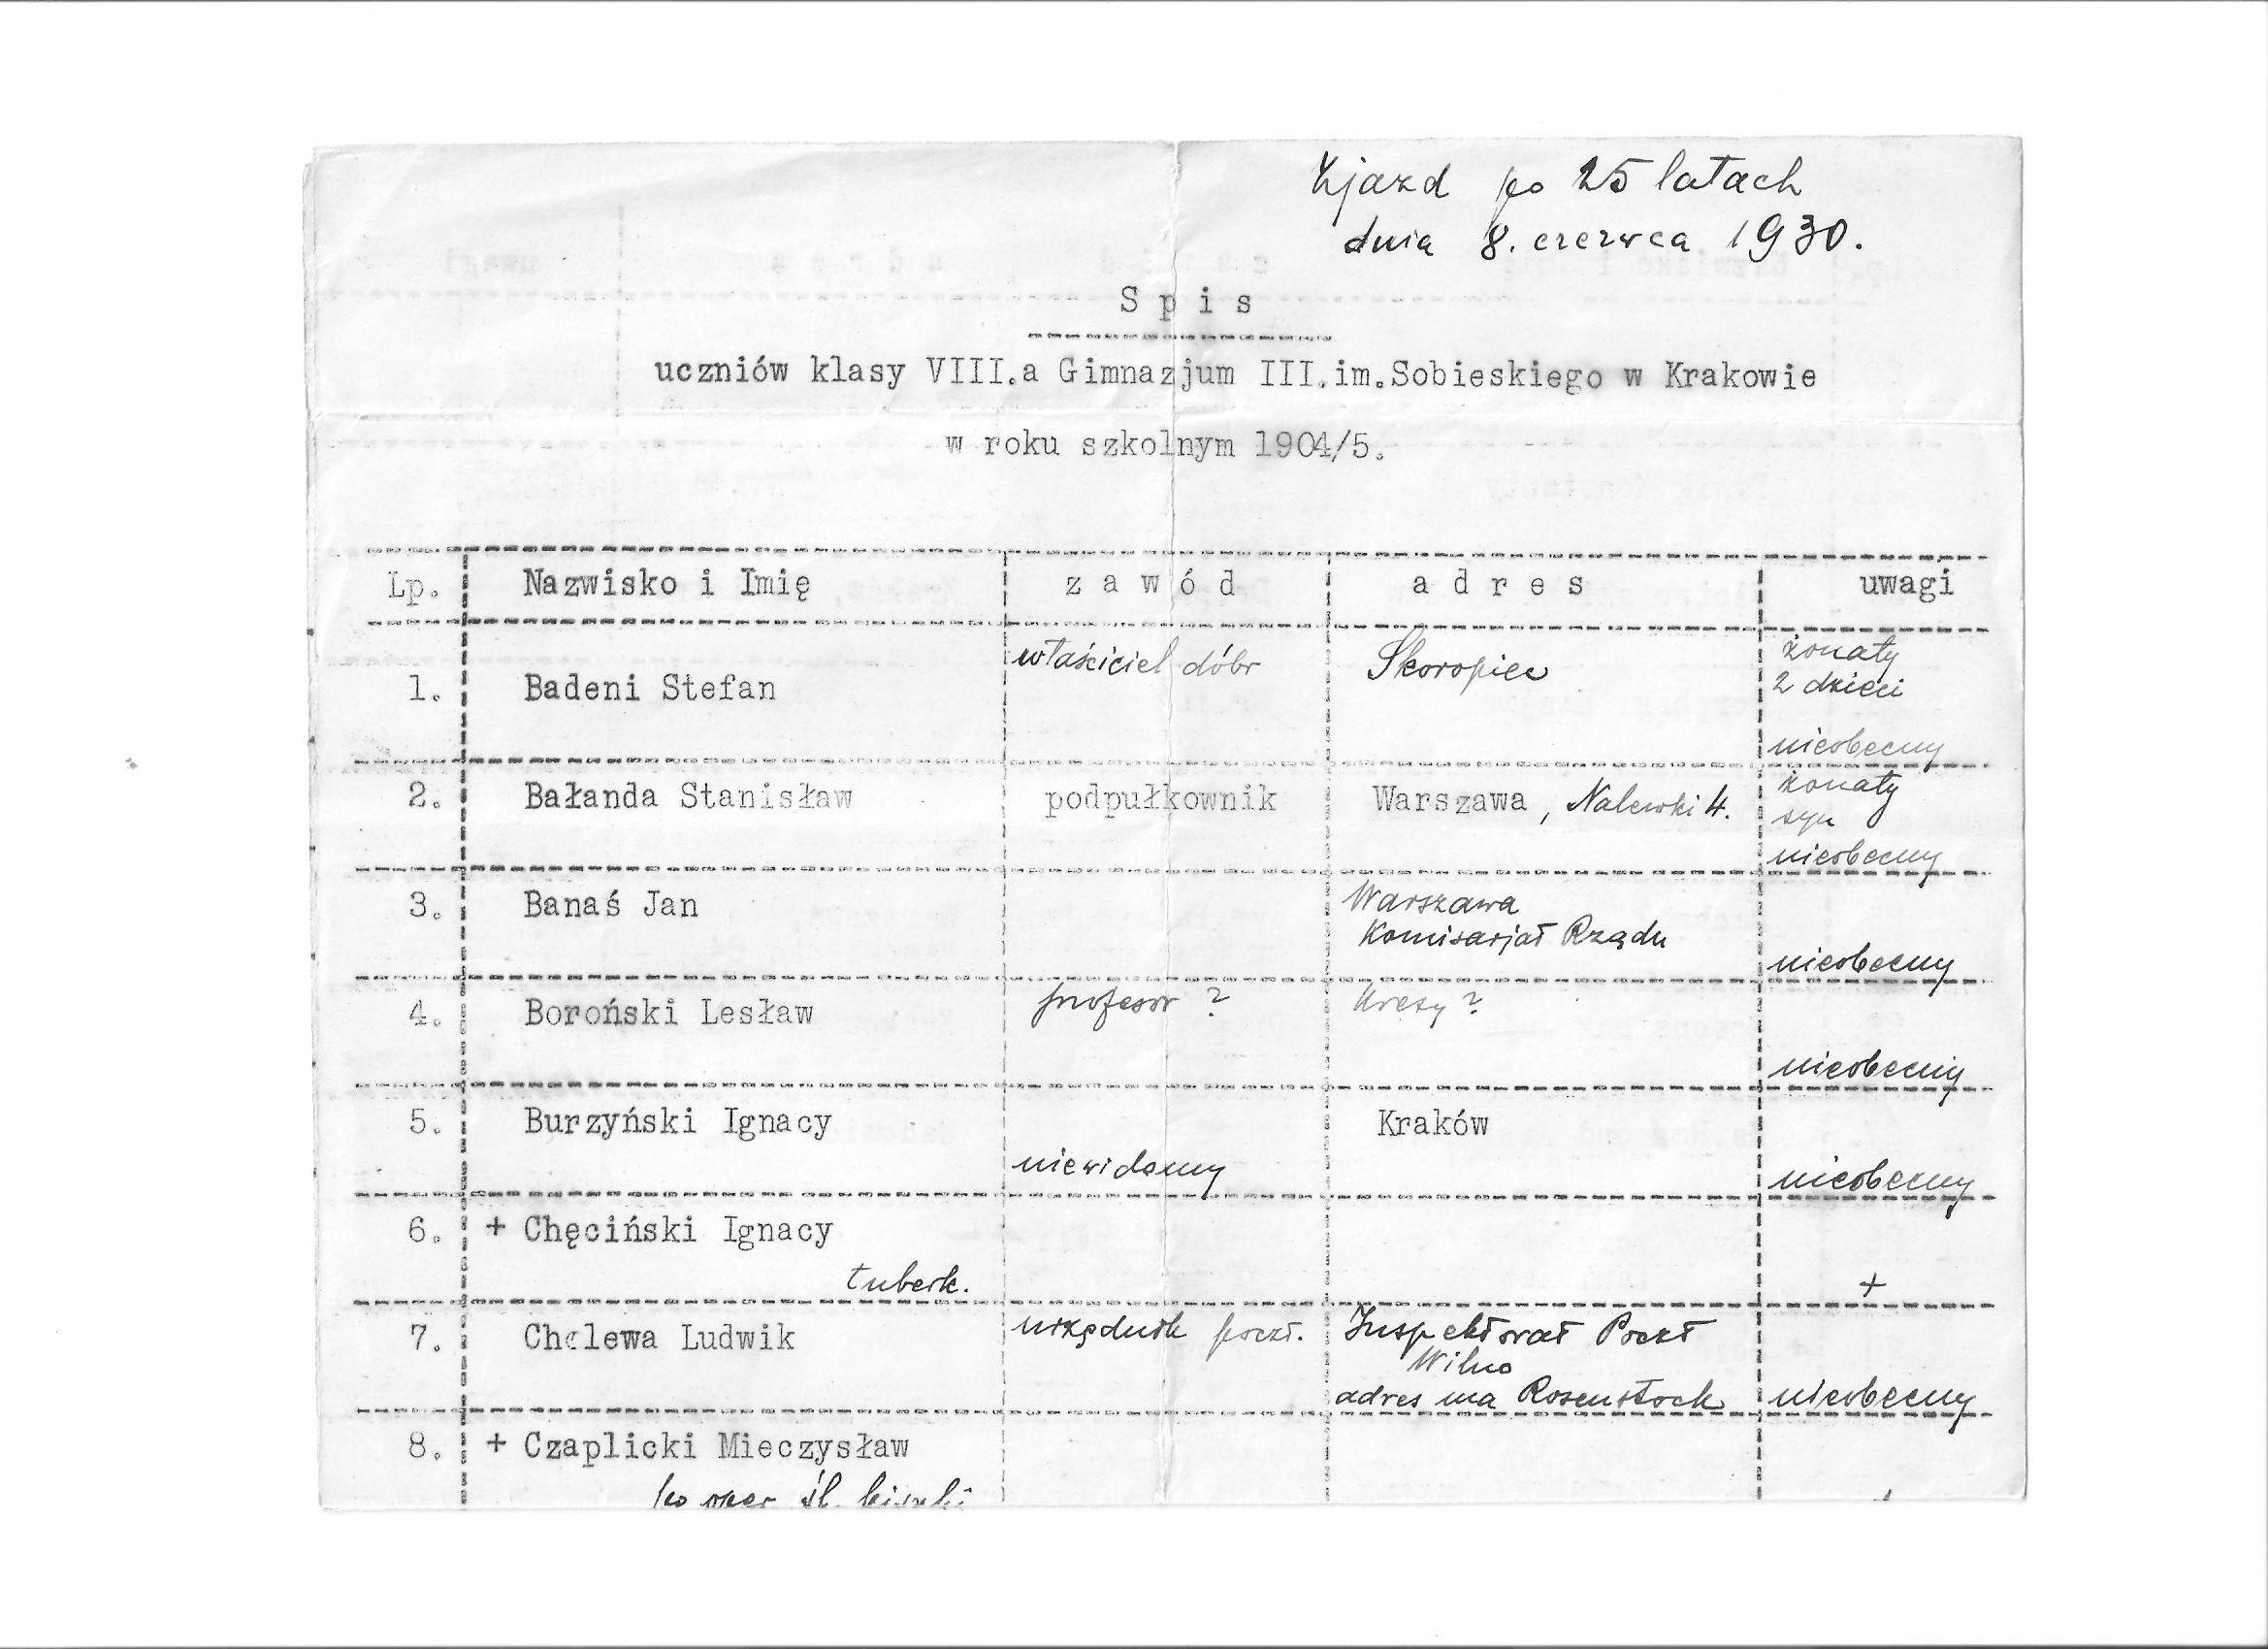 Zjazd po 25 latach
dnia 8. czerwca 1930.
Spis
uczniów klasy VIII.a Gimnazjum III.im.Sobieskiego w Krakowie
w roku szkolnym 1904/5.
Lp. Nazwisko i Imię zawód adres uwagi
1. Badeni Stefan właściciel dóbr żonaty
2 dzieci
nieobecny
2. Bałanda Stanisław podpułkownik Warszawa, Nalewki 4. żonaty
syn
nieobecny
3. Banaś Jan Warszawa
Komisarjat Rządu
nieobecny
4. Boroński Lesław profesor ? Kresy ?
nieobecny
5. Burzyński Ignacy Kraków
niewidomy nieobecny
6. + Chęciński Ignacy
tuberk. +
7. Cholewa Ludwik urzędnik poczt. Inspektorat Poczt
Wilno
adres ma Rosenstock nieobecny
8. + Czaplicki Mieczysław